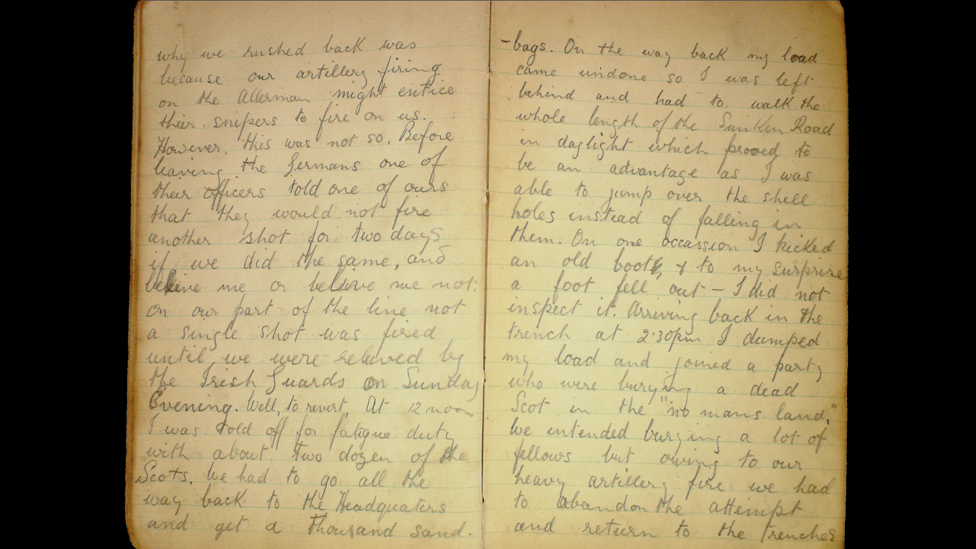 why we rushed back was
because our artillery firing
on the Allerman might entice
their snipers to fire on us.
However, this was not so. Before
leaving the Germans one of
their officers told one of ours
that they would not fire
another shot for two days
if we did the same, and
believe me or believe me not
on our part of the line not
a single shot was fired
until we were relieved by
the Irish Guards on Sunday
Evening. Well, to revert, At 12 noon
I was told off for fatigue duty
with about two dozen of the
Scots. We had to go all the
way back to the Headquaters
and get a thousand sand-
-bags. On the way back my load
came undone so I was left
behind and had to walk the
whole length of the Sunken Road
in daylight which prooved to
be an advantage as I was
able to jump over the shell
holes instead of falling in
them. On one occassion I kicked
an old boot, & to my surprise
a foot fell out – I did not
inspect it. Arriving back in the
trench at 2.30pm I dumped
my load and joined a party
who were burying a dead
Scot in the "no mans land."
We intended burying a lot of
fellows but owing to our
heavy artillery fire we had
to abandon the attempt
and return to the trenches